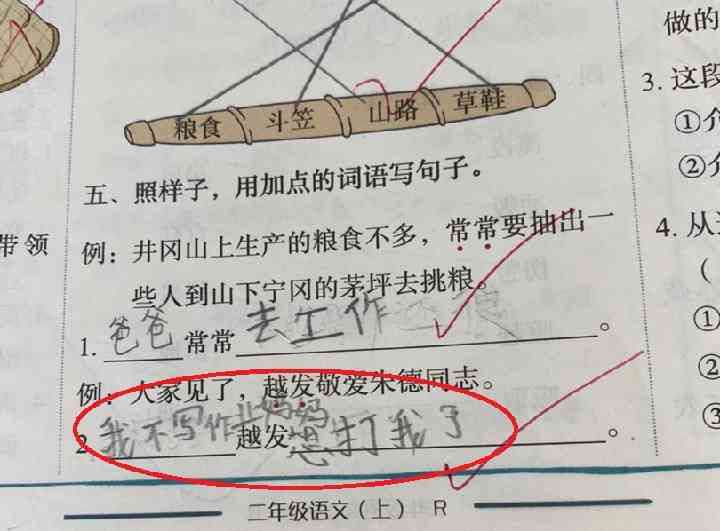 粮食 斗笠 山路 草鞋
五、照样子，用加点的词语写句子。
例：井冈山上生产的粮食不多，常常要抽出一
些人到山下宁冈的茅坪去挑粮。
1. 爸爸常常去工作。
例：大家见了，越发敬爱朱德同志。
2. 我不写作业妈妈越发想打我了。
二年级语文（上） R
带领
做的
3. 这段
①
②
4. 从
（
①
②
③